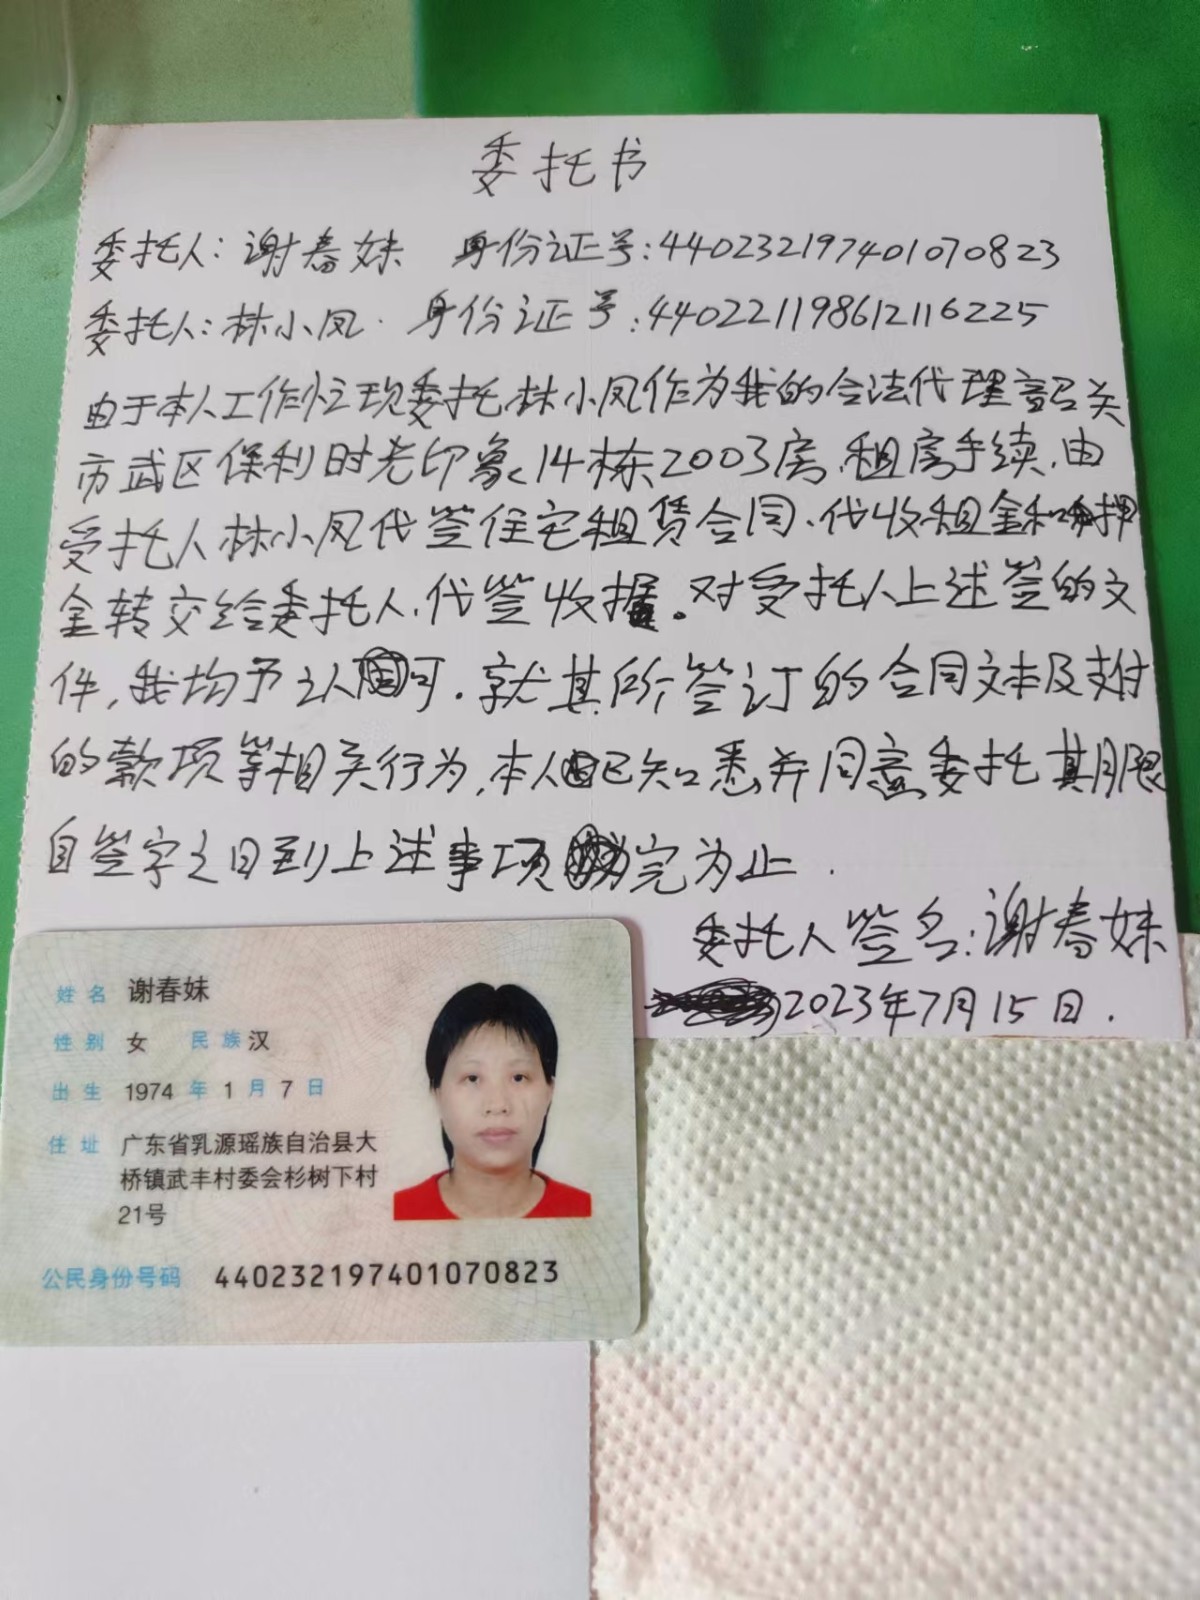 委托书
委托人：谢春妹 身份证号：440232197401070823
委托人：林小凤. 身份证号：440221198612116225
由于本人工作忙现委托林小凤作为我的合法代理韶关
市武区保利时光印象、14栋2003房、租房手续、由
受托人林小凤代签住宅租赁合同、代收租金和押
金转交给委托人、代签收据。对受托人上述签的文
件，我均予以认可。就其所签订的合同文本及支付
的款项等相关行为，本人已知悉并同意委托其期限
自签字之日到上述事项办完为止.
委托人签名：谢春妹
2023年7月15日.
姓名 谢春妹
性别 女 民族 汉
出生 1974 年 1 月 7 日
住址 广东省乳源瑶族自治县大
桥镇武丰村委会杉树下村
21号
公民身份号码 440232197401070823